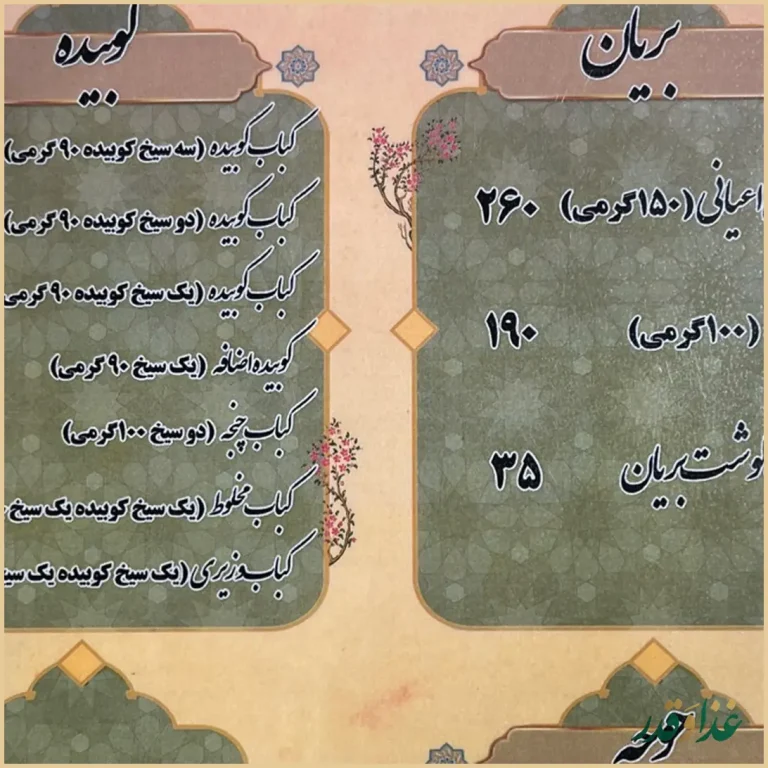 بریان
اعیانی (۱۵۰گرمی) ۲۶۰
(۱۰۰گرمی) ۱۹۰
گوشت بریان ۳۵
کوبیده
کباب کوبیده (سه سیخ کوبیده ۹۰ گرمی)
کباب کوبیده (دو سیخ کوبیده ۹۰ گرمی)
کباب کوبیده (یک سیخ کوبیده ۹۰ گرمی
کوبیده اضافه (یک سیخ ۹۰ گرمی)
کباب چنجه (دو سیخ ۱۰۰گرمی)
کباب مخلوط (یک سیخ کوبیده یک سیخ
کباب وزیری (یک سیخ کوبیده یک سیخ
جوجه